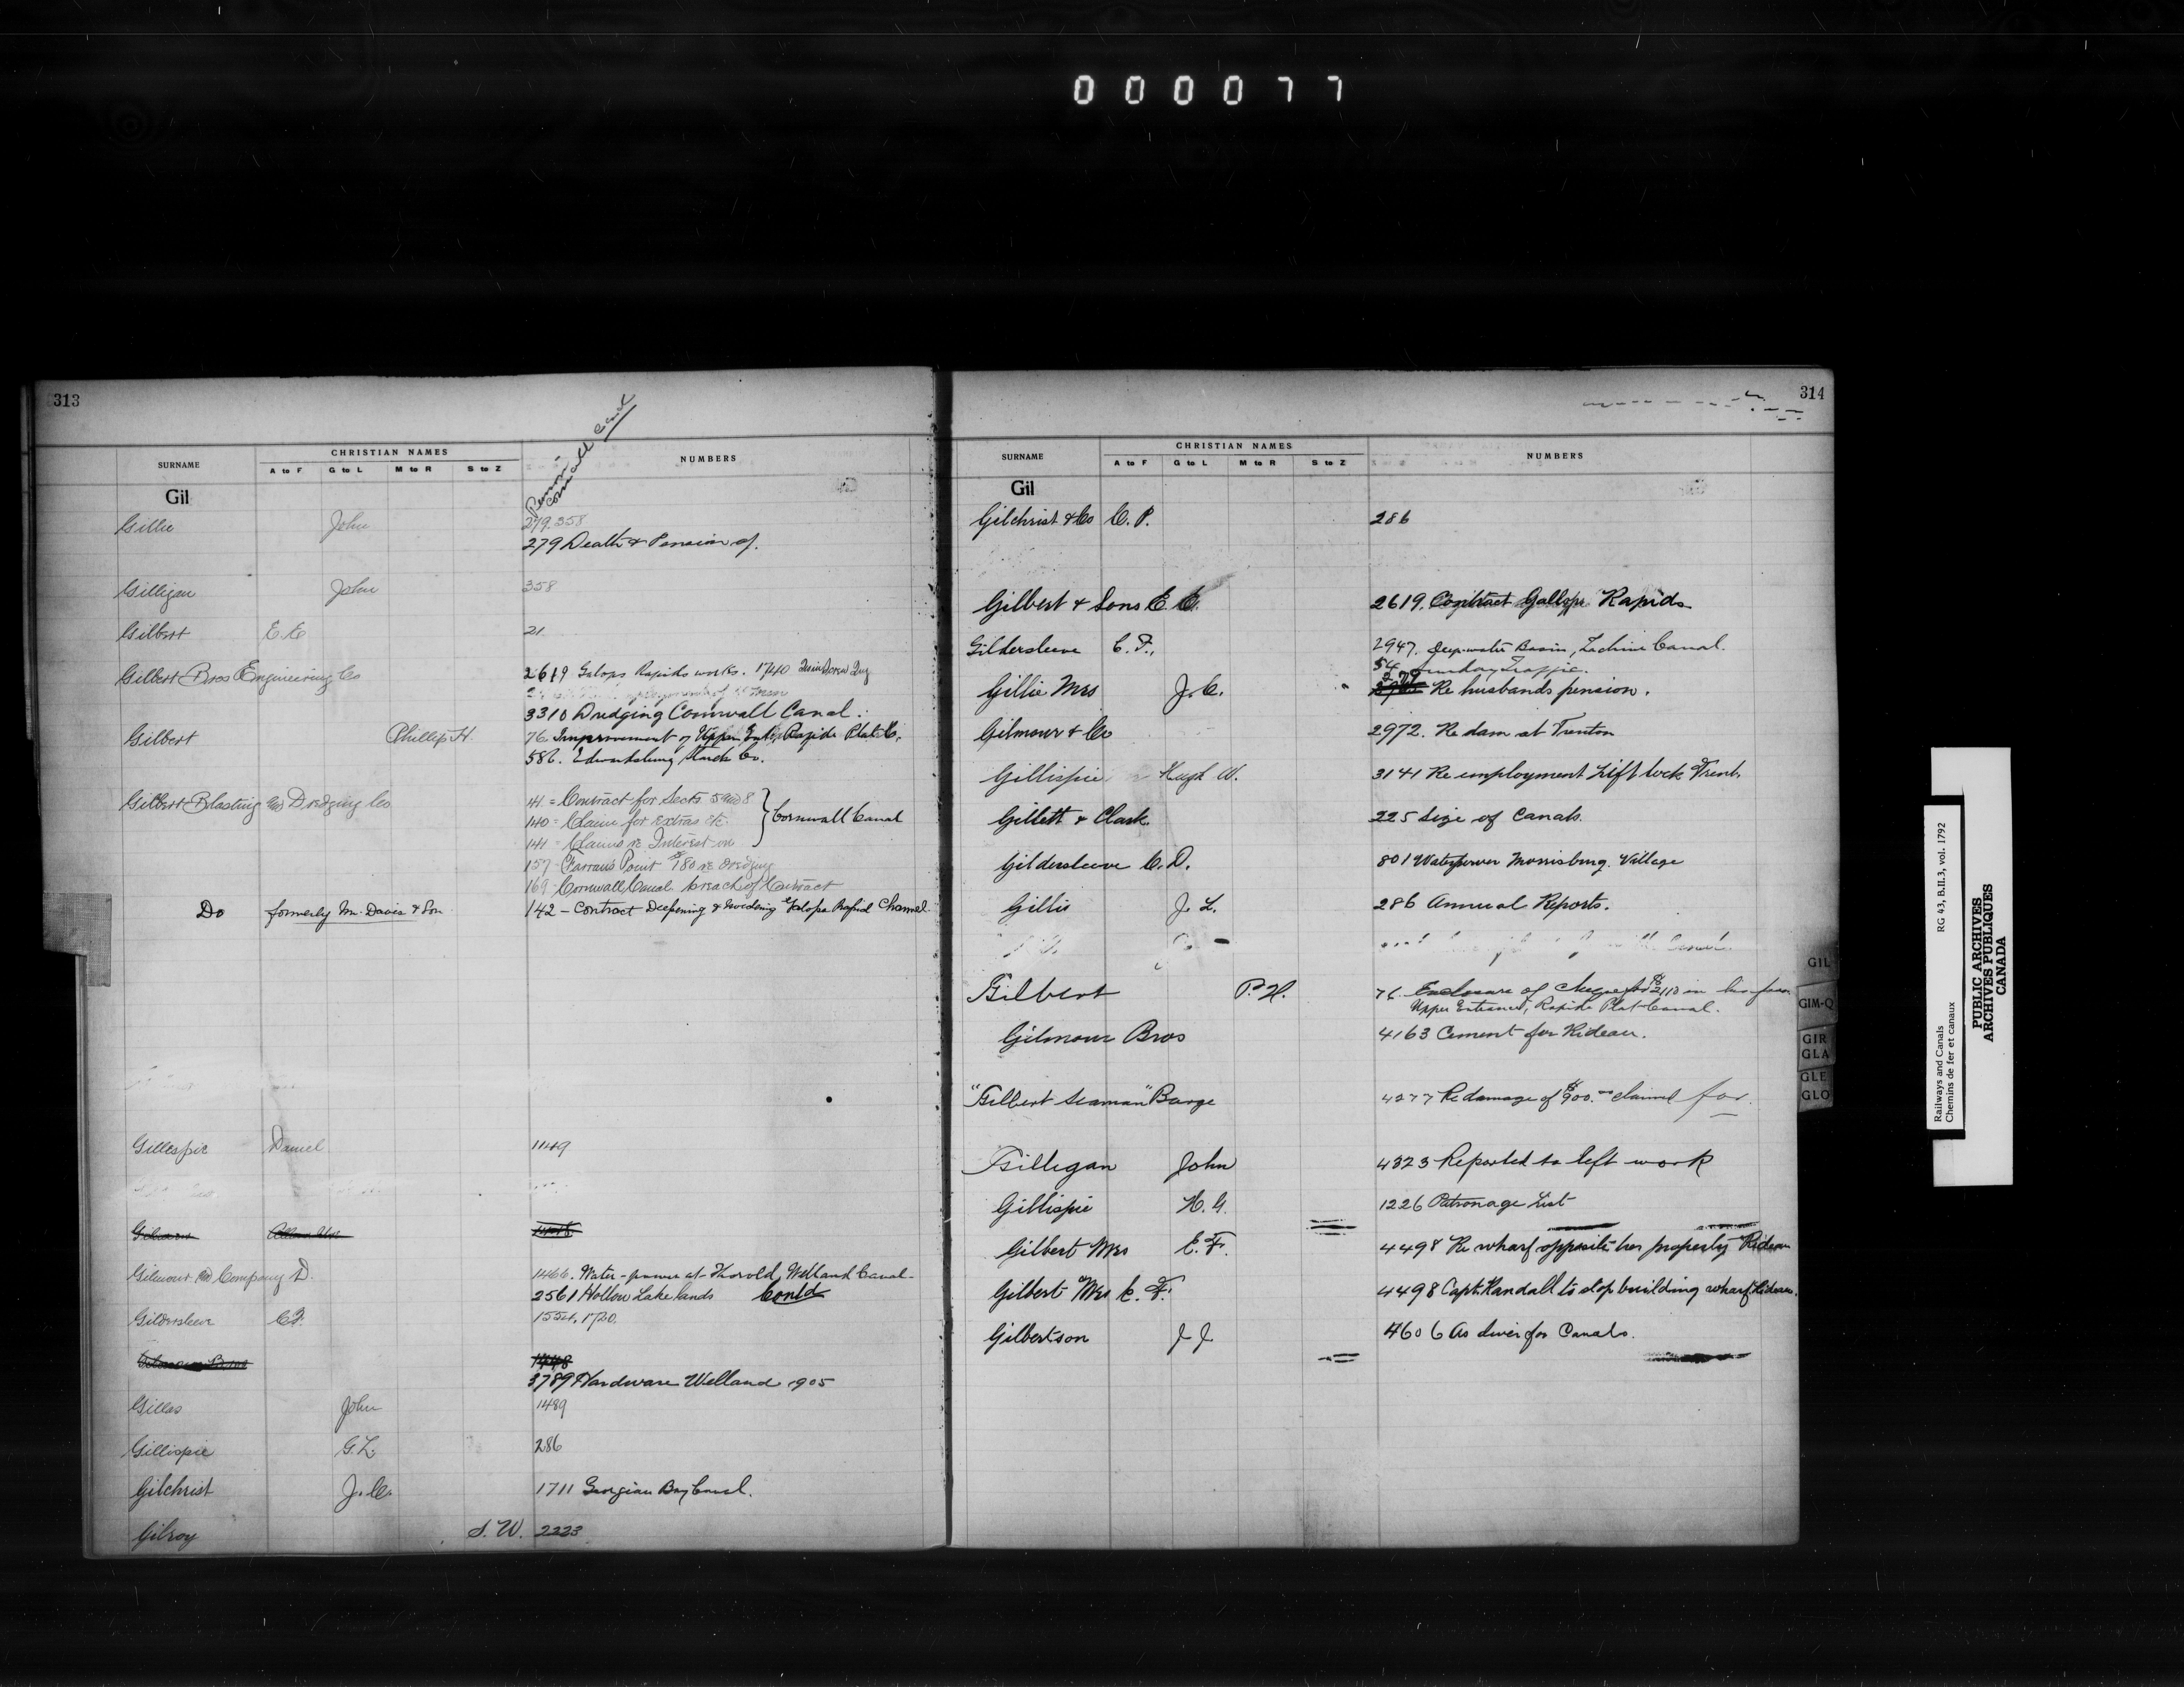 000077
313
SURNAME CHRISTIAN NAMES NUMBERS
A to F G to L M to R S to Z
Gil
Cornwall Canal
Gillie John 279.358
279 Death & Pension of.
Gilligan John 358
Gilbert E. E. 21
Gilbert Bros Engineering Co 2619 Galops Rapids works. 1740
3310 Dredging Cornwall Canal.
Gilbert Phillip H. 76. Improvement of Upper Ent. Rapide Plat C.
586. Edwardsburg Starch Co.
Gilbert Blasting and Dredging Co 141 = Contract for Sects 5 and 8
140 = Claim for extras etc. } Cornwall Canal
141 = Claims re Interest on
157 - Farrans Point $180 re dredging
169 - Cornwall Canal breach of Contract
Do formerly M. Davis & Son 142 - Contract Deepening & widening Galops Rapid Channel
Gillespie Daniel 1149
Gilmour and Company D. 1466. Water-power at Thorold, Welland Canal-
2561 Hollow Lake lands Contd
Gildersleeve C.F. 1554, 1720.
1448
3789 Hardware Welland 1905
Gillas John 1489
Gillispie G.L. 286
Gilchrist J. C. 1711 Georgian Bay Canal.
Gilroy S. W. 2223
314
SURNAME CHRISTIAN NAMES NUMBERS
A to F G to L M to R S to Z
Gil
Gilchrist & Co C. P. 286
Gilbert & Sons E. E. 2619. Contract Gallops Rapids
Gildersleeve C. F., 2947. Deep-water Basin, Lachine Canal.
54 Sunday Traffic.
Gillie Mrs J. C. 279 Re husbands pension.
Gilmour & Co 2972. Re dam at Trenton
Gillispie Hugh W. 3141 Re employment Lift lock Trent.
Gillett & Clark 225 Size of Canals.
Gildersleeve C. D. 801 Waterpower Morrisburg Village
Gillis J. L. 286 Annual Reports.
Gilbert P. H. 76. Enclosure of cheque for $2110 in his favor
Upper Entrance, Rapide Plat Canal.
Gilmour Bros 4163 Cement for Rideau.
"Gilbert Seaman" Barge 4277 Re damage of $900.00 claimed for.
Gilligan John 4323 Reported to left work
Gillispie H. G. 1226 Patronage List
Gilbert Mrs E. F. 4498 Re wharf opposite her property Rideau
Gilbert Mrs E. F. 4498 Capt. Randall to stop building wharf Rideau.
Gilbertson J J. 4606 As diver for Canals.
GIL
GIM-Q
GIR
GLA
GLE
GLO
Railways and Canals RG 43, B.II.3, vol. 1792
Chemins de fer et canaux
PUBLIC ARCHIVES
ARCHIVES PUBLIQUES
CANADA